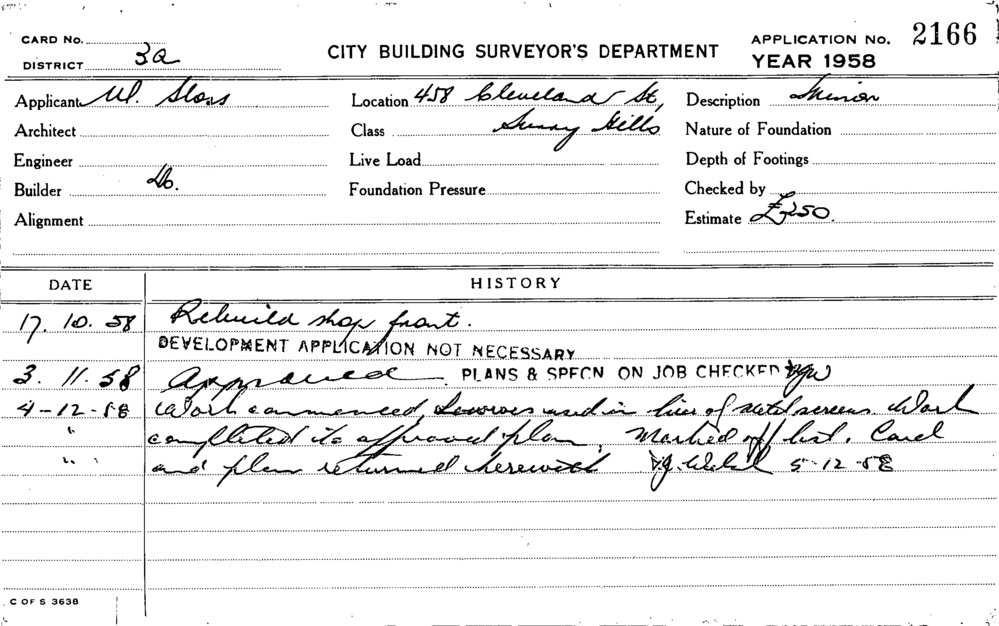 CARD No.
DISTRICT 3a
CITY BUILDING SURVEYOR'S DEPARTMENT
APPLICATION No. 2166
YEAR 1958
Applicant W. Sloss
Location 458 Cleveland St,
Description Minor
Architect
Class Surry Hills
Nature of Foundation
Engineer
Live Load
Depth of Footings
Builder Do.
Foundation Pressure
Checked by
Alignment
Estimate £250.
DATE HISTORY
17. 10. 58 Rebuild shop front.
DEVELOPMENT APPLICATION NOT NECESSARY
3. 11. 58 Approved. PLANS & SPECN ON JOB CHECKED
4-12-58 Work commenced, Louvres used in lieu of metal screens. Work
" completed to approved plan. Marked off list. Card
" and plan returned herewith 5-12-58
C OF S 3638